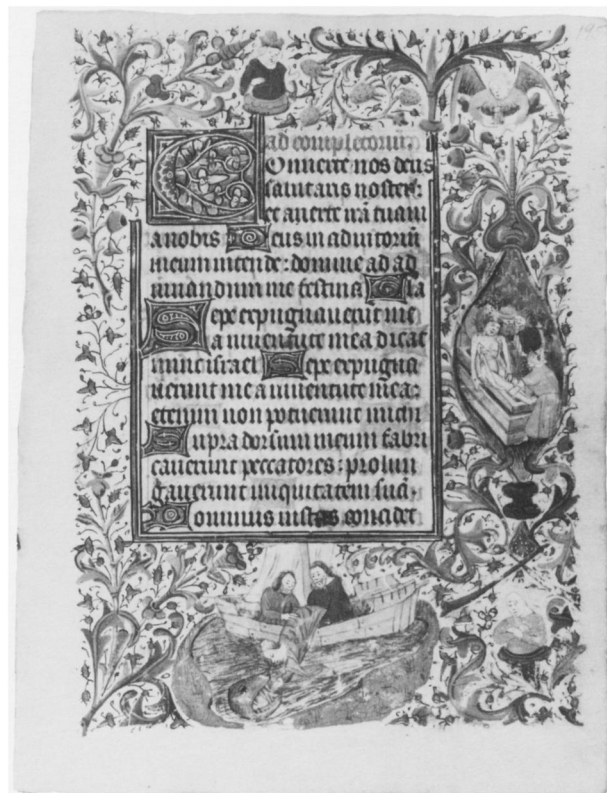 ad completoriū.
Onuerte nos deus
salutaris noster:
et auerte irā tuam
a nobis Deus in adiutoriū
meum intende: domine ad ad
iuuandum me festina Gla
Sepe expugnauerunt me
a iuuentute mea dicat
nunc israel Sepe expugna
uerunt me a iuuentute mea:
etenim non potuerunt michi
Supra dorsum meum fabri
cauerunt peccatores: prolon
gauerunt iniquitatem suā.
Dominus iustus concidet